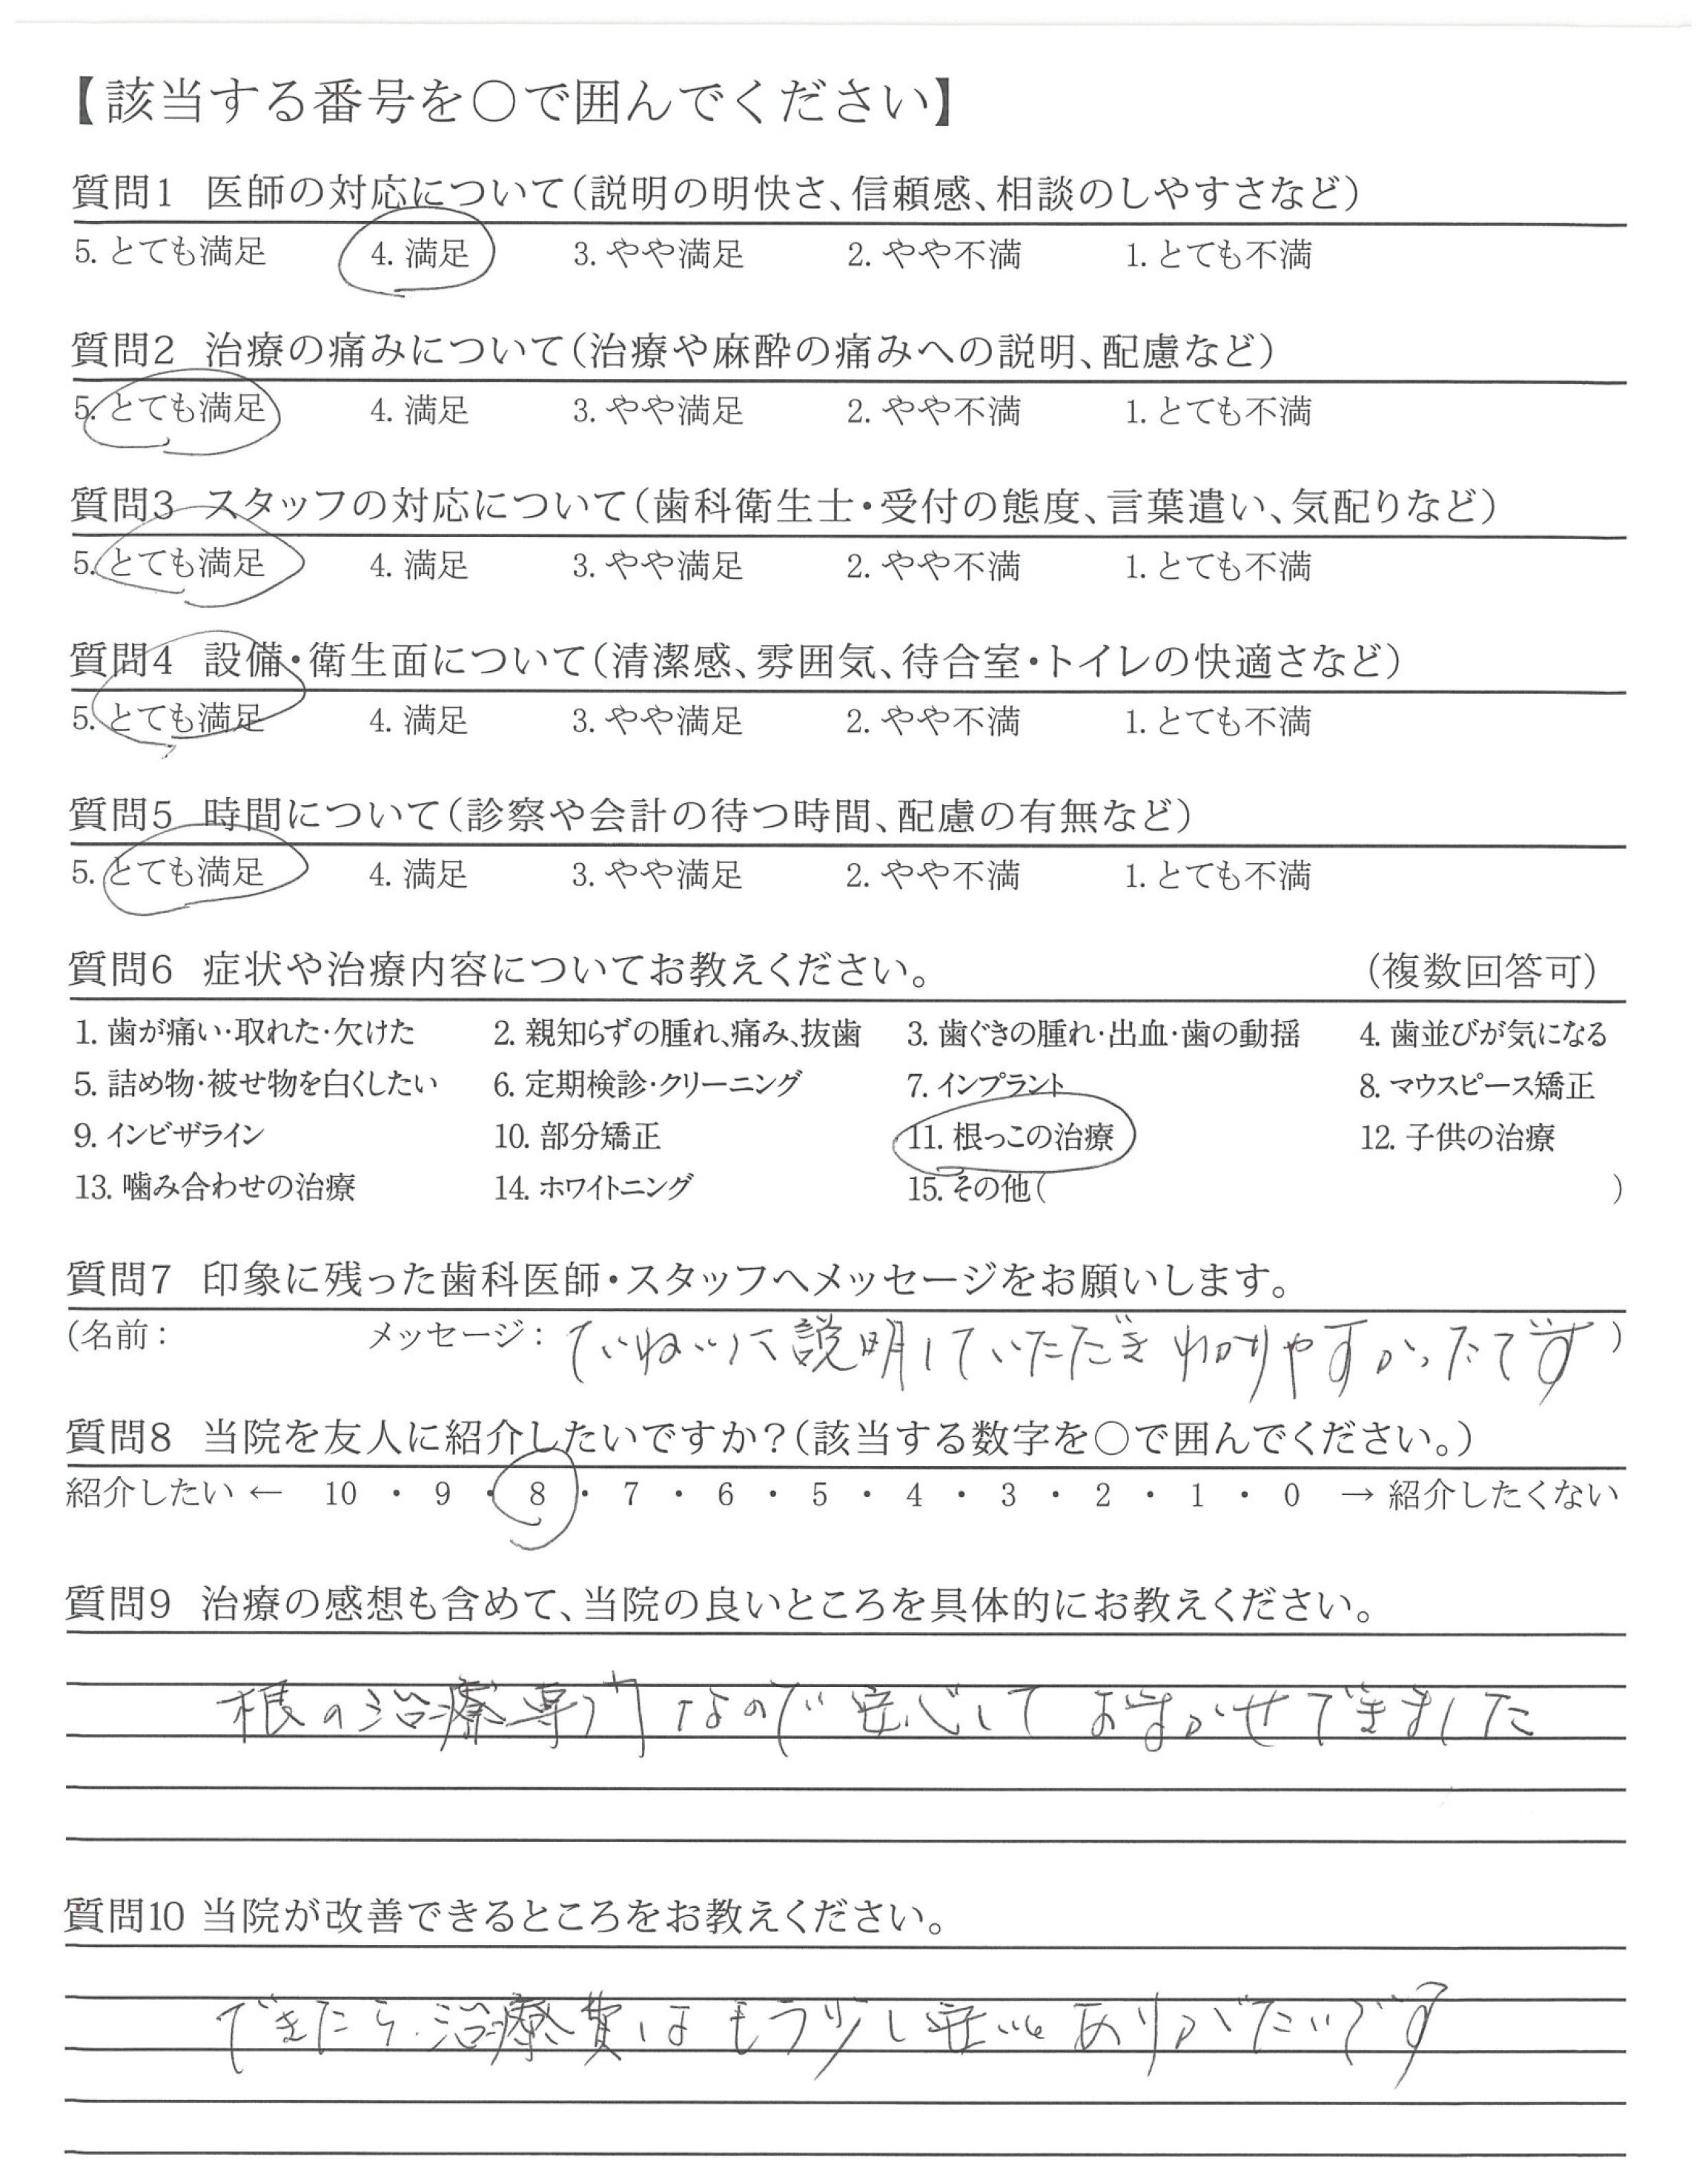 【該当する番号を〇で囲んでください】
質問1 医師の対応について(説明の明快さ、信頼感、相談のしやすさなど)
5. とても満足 4. 満足 3. やや満足 2. やや不満 1. とても不満
質問2 治療の痛みについて(治療や麻酔の痛みへの説明、配慮など)
5. とても満足 4. 満足 3. やや満足 2. やや不満 1. とても不満
質問3 スタッフの対応について(歯科衛生士・受付の態度、言葉遣い、気配りなど)
5. とても満足 4. 満足 3. やや満足 2. やや不満 1. とても不満
質問4 設備・衛生面について(清潔感、雰囲気、待合室・トイレの快適さなど)
5. とても満足 4. 満足 3. やや満足 2. やや不満 1. とても不満
質問5 時間について(診察や会計の待つ時間、配慮の有無など)
5. とても満足 4. 満足 3. やや満足 2. やや不満 1. とても不満
質問6 症状や治療内容についてお教えください。 (複数回答可)
1. 歯が痛い・取れた・欠けた 2. 親知らずの腫れ、痛み、抜歯 3. 歯ぐきの腫れ・出血・歯の動揺 4. 歯並びが気になる
5. 詰め物・被せ物を白くしたい 6. 定期検診・クリーニング 7. インプラント 8. マウスピース矯正
9. インビザライン 10. 部分矯正 11. 根っこの治療 12. 子供の治療
13. 噛み合わせの治療 14. ホワイトニング 15. その他( )
質問7 印象に残った歯科医師・スタッフへメッセージをお願いします。
(名前: メッセージ: ていねいに説明していただき わかりやすかったです )
質問8 当院を友人に紹介したいですか?(該当する数字を〇で囲んでください。)
紹介したい ← 10 ・ 9 ・ 8 ・ 7 ・ 6 ・ 5 ・ 4 ・ 3 ・ 2 ・ 1 ・ 0 → 紹介したくない
質問9 治療の感想も含めて、当院の良いところを具体的にお教えください。
根の治療専門なので安心して おまかせできました
質問10 当院が改善できるところをお教えください。
できたら治療費はもう少し安いと ありがたいです